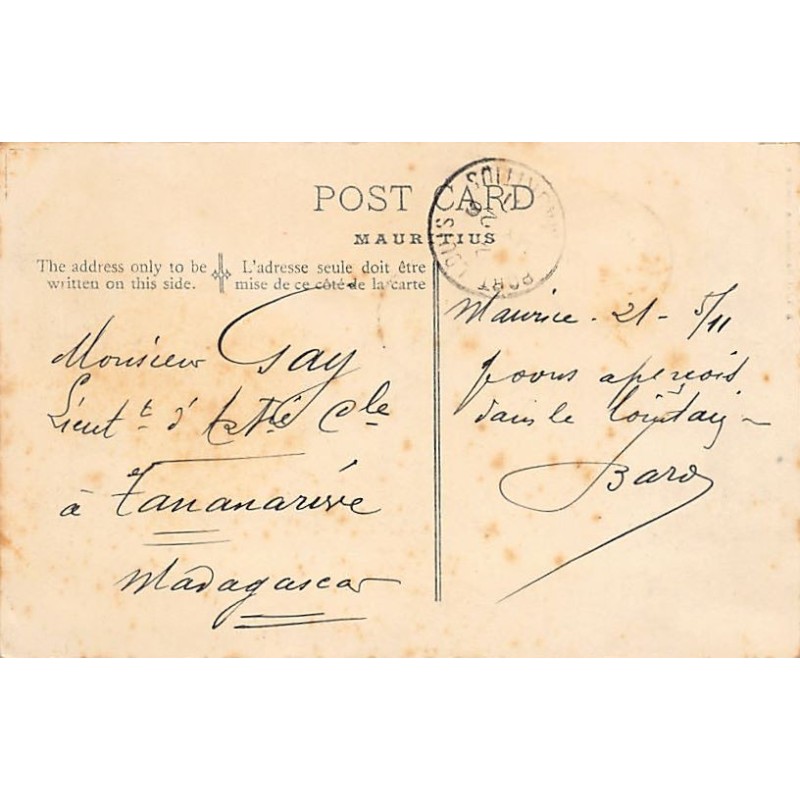 POST CARD
MAURITIUS
The address only to be written on this side.
L'adresse seule doit être mise de ce côté de la carte
MAURITIUS
PORT LOUIS
Monsieur Gay
Lieutt d'Artie Cle
à Tananarive
Madagascar
Maurice - 21 - 5/11
vous aperçois
dans le lointain